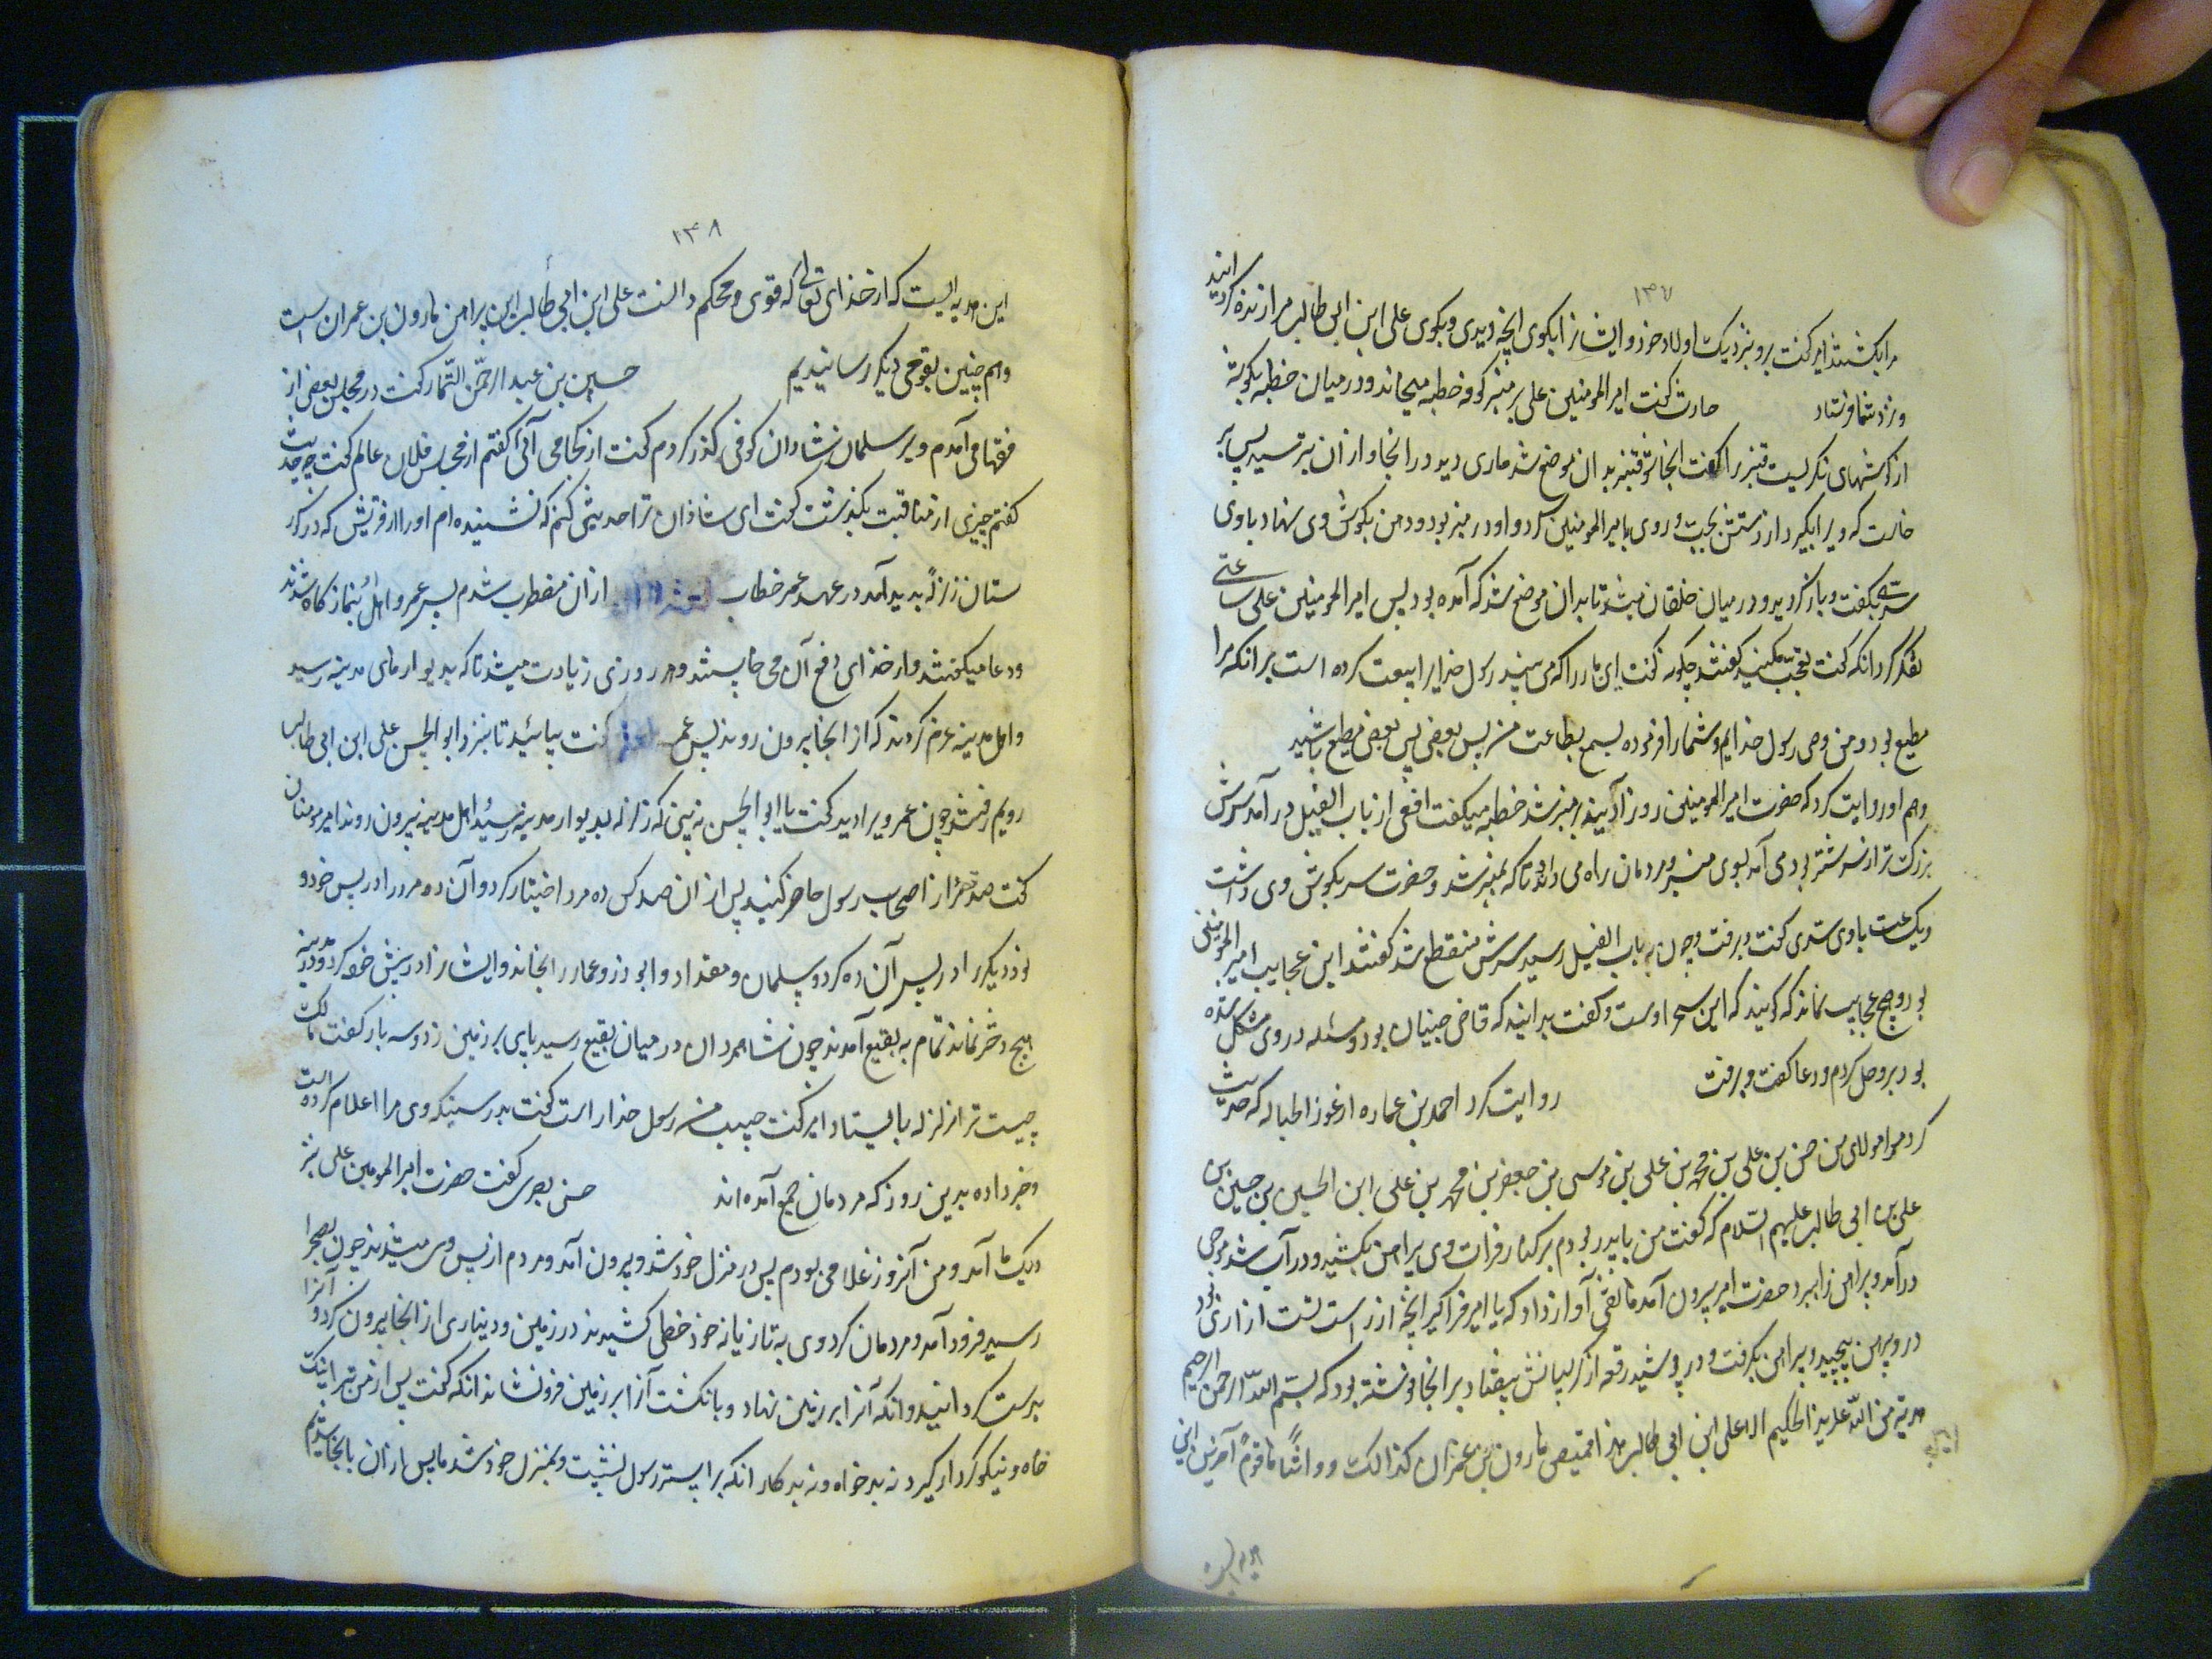 ۱۳۷
مرا بکشتند امیر گفت برو بنزدیک اولاد خود و ایشانرا بگوی آنچه دیدی و بگوی علی ابن ابی طالب مرا زنده گردانید
و نزد شما فرستاد حارث گفت امیر المومنین علی بر منبر کوفه خطبه میخواند و در میان خطبه بگوشهٔ
از گوشهای نگریست قنبر را گفت آنجا شو قنبر بدان موضع شد ماری دید در آنجا و از آن بترسید پس بر
خاست که ویرا بگیرد از دستش بجست و روی بامیر المومنین کرد و او در منبر بود دهن بگوش وی نهاد با وی
بگفت و باز گردید و در میان خلقان میشد تا بدان موضع شد که آمده بود پس امیر المومنین علی ساعتی
تفکر کرد انکه گفت تعجب میکنید گفتند چگونه گفت این مار را که می بینید رسول خدایرا بیعت کرده است بر انکه مرا
مطیع بود و من وصی رسول خدایم و شما را فرموده بسمع بطاعت من پس بعضی پس بعضی مطیع باشید
و هم او روایت کرد که حضرت امیر المومنین روز آدینه بر منبر شد خطبه میگفت افعی از باب الفیل در آمد سرش
بزرگ تر از سر شتر بود می آمد بسوی منبر و مردمان راه می دادند تا که بمنبر شد و حضرت سر بگوش وی داشت
و یک ساعت باوی سری گفت و برفت و چون به باب الفیل رسید سرش منقطع شد گفتند این عجایب امیر المومنین
بود و هیچ عجایب نماند که گویند که این سحر اوست و گفت بدانید که قاضی جنیان بود و مسئله در وی مشکل شده
بود بر وی حل کردم و دعا گفت و برفت روایت کرد احمد بن عماره از که حدیث
کرد مرا مولای من حسن بن علی بن محمد بن علی بن موسی بن جعفر بن محمد بن علی ابن الحسین بن حسین بن
علی بن ابی طالب علیهم السلام که گفت من با پدر بودم بر کنار فرات وی پیراهن بکشید و در آب شد موجی
در آمد و پیراهن را ببرد حضرت امیر بیرون آمد هاتفی آواز داد که یا امیر فرا گیر آنچه از راست تست ازاری بود
در و پیرهن پیچیده پیراهن بگرفت و در پوشید رقعه از گریبانش بیفتاد بر آنجا نوشته بود که بسم الله الرحمن الرحیم
هدیة من الله عزیز الحکیم الی علی ابن ابی طالب هذا قمیص هارون بن عمران کذالک و اورثناها قوما آخرین این
۱۳۸
این هدیه ایست که از خدای تعالی که قوی و محکم دانست علی ابن ابی طالب این پیراهن هارون بن عمران است
و هم چنین بقومی دیگر رسانیدیم حسین بن عبد الرحمن التمار گفت در مجلس بعضی از
فقها می آمدم و بر سلمان شادان کوفی گذر کردم گفت از کجا می آئی گفتم از مجلس فلان عالم گفت چه حدیث
گفتم چیزی از مناقبت بگذشت گفت ای شاذان ترا حدیثی کنم که نشنیده ام او را از قریش که در گور
ستان زلزله پدید آمد در عهد عمر خطاب از ان مضطرب شدم پسر عمر و اهل بنماز گاه شدند
و دعا میگفتند و از خدای دفع آن می خواستند و هر روزی زیادت میشد تا که بدیوارهای مدینه رسید
و اهل مدینه عزم کردند که از آنجا بیرون روند پس عمر گفت بیائید تا بنزد ابو الحسن علی ابن ابی طالب
رویم رفتند چون عمر ویرا دید گفت یا ابو الحسن نه بینی که زلزله بدیوار مدینه رسید اهل مدینه بیرون روند امیر مومنان
گفت صد نفر از اصحاب رسول حاضر کنید پس از ان صد کس ده مرد اختیار کرد و آن ده مرد را در پس خود و
نود دیگر را در پس آن ده کرد و سلمان و مقداد و ابوذر و عمار را بخواند و ایشانرا در پیش خود کرد و در مدینه
هیچ دختر نماند تمام به بقیع آمدند چون شاه مردان در میان بقیع رسید پای بر زمین زد و سه بار گفت مالک
چیست ترا زلزله بایستاد امیر گفت حبیب من رسول خدا راست گفت بدرستیکه وی مرا اعلام کرده است
و خبر داده بدین روز که مردمان جمع آمده اند حسن بصری گفت حضرت امیر المومنین علی بنز
دیک ما آمد و من آنروز غلامی بودم پس در منزل خود شد و بیرون آمد و مردم از پس وی میشدند چون بصحرا
رسید فرود آمد و مردمان گرد وی به تازیانه خود خطی کشیدند در زمین و دیناری از آنجا بیرون کرد و آنرا
بدست گردانید و انکه آنرا بر زمین نهاد و بانگشت آنرا بر زمین فرو نشاند انکه گفت پس از من ترا نیک
خواه و نیکو کردار گیرد نه بدخواه و نه بد کار انکه بر استر رسول نشست و بمنزل خود شد ما پس از ان بآنجا شدیم